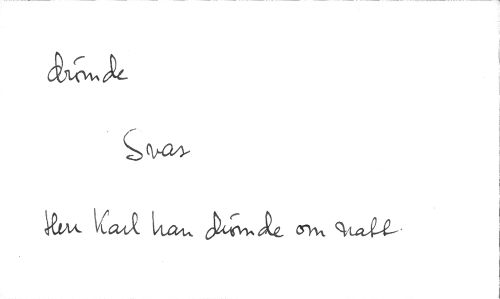 drömde
Svar
Herr Karl han drömde om natt.